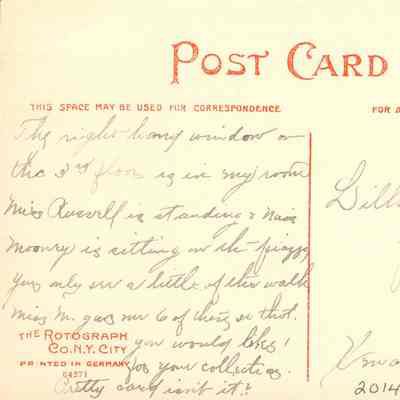 POST CARD
THIS SPACE MAY BE USED FOR CORRESPONDENCE
FOR A
The right hand window on
the 3rd floor is in my room
Miss Russell is standing & Miss
Mooney is sitting on the piazza
You only see a little of the walk
Miss M. gave me 6 of this so thot
you would like 1
for your collection.
Pretty card isn't it?
THE ROTOGRAPH
CO. N.Y. CITY
PRINTED IN GERMANY
2014